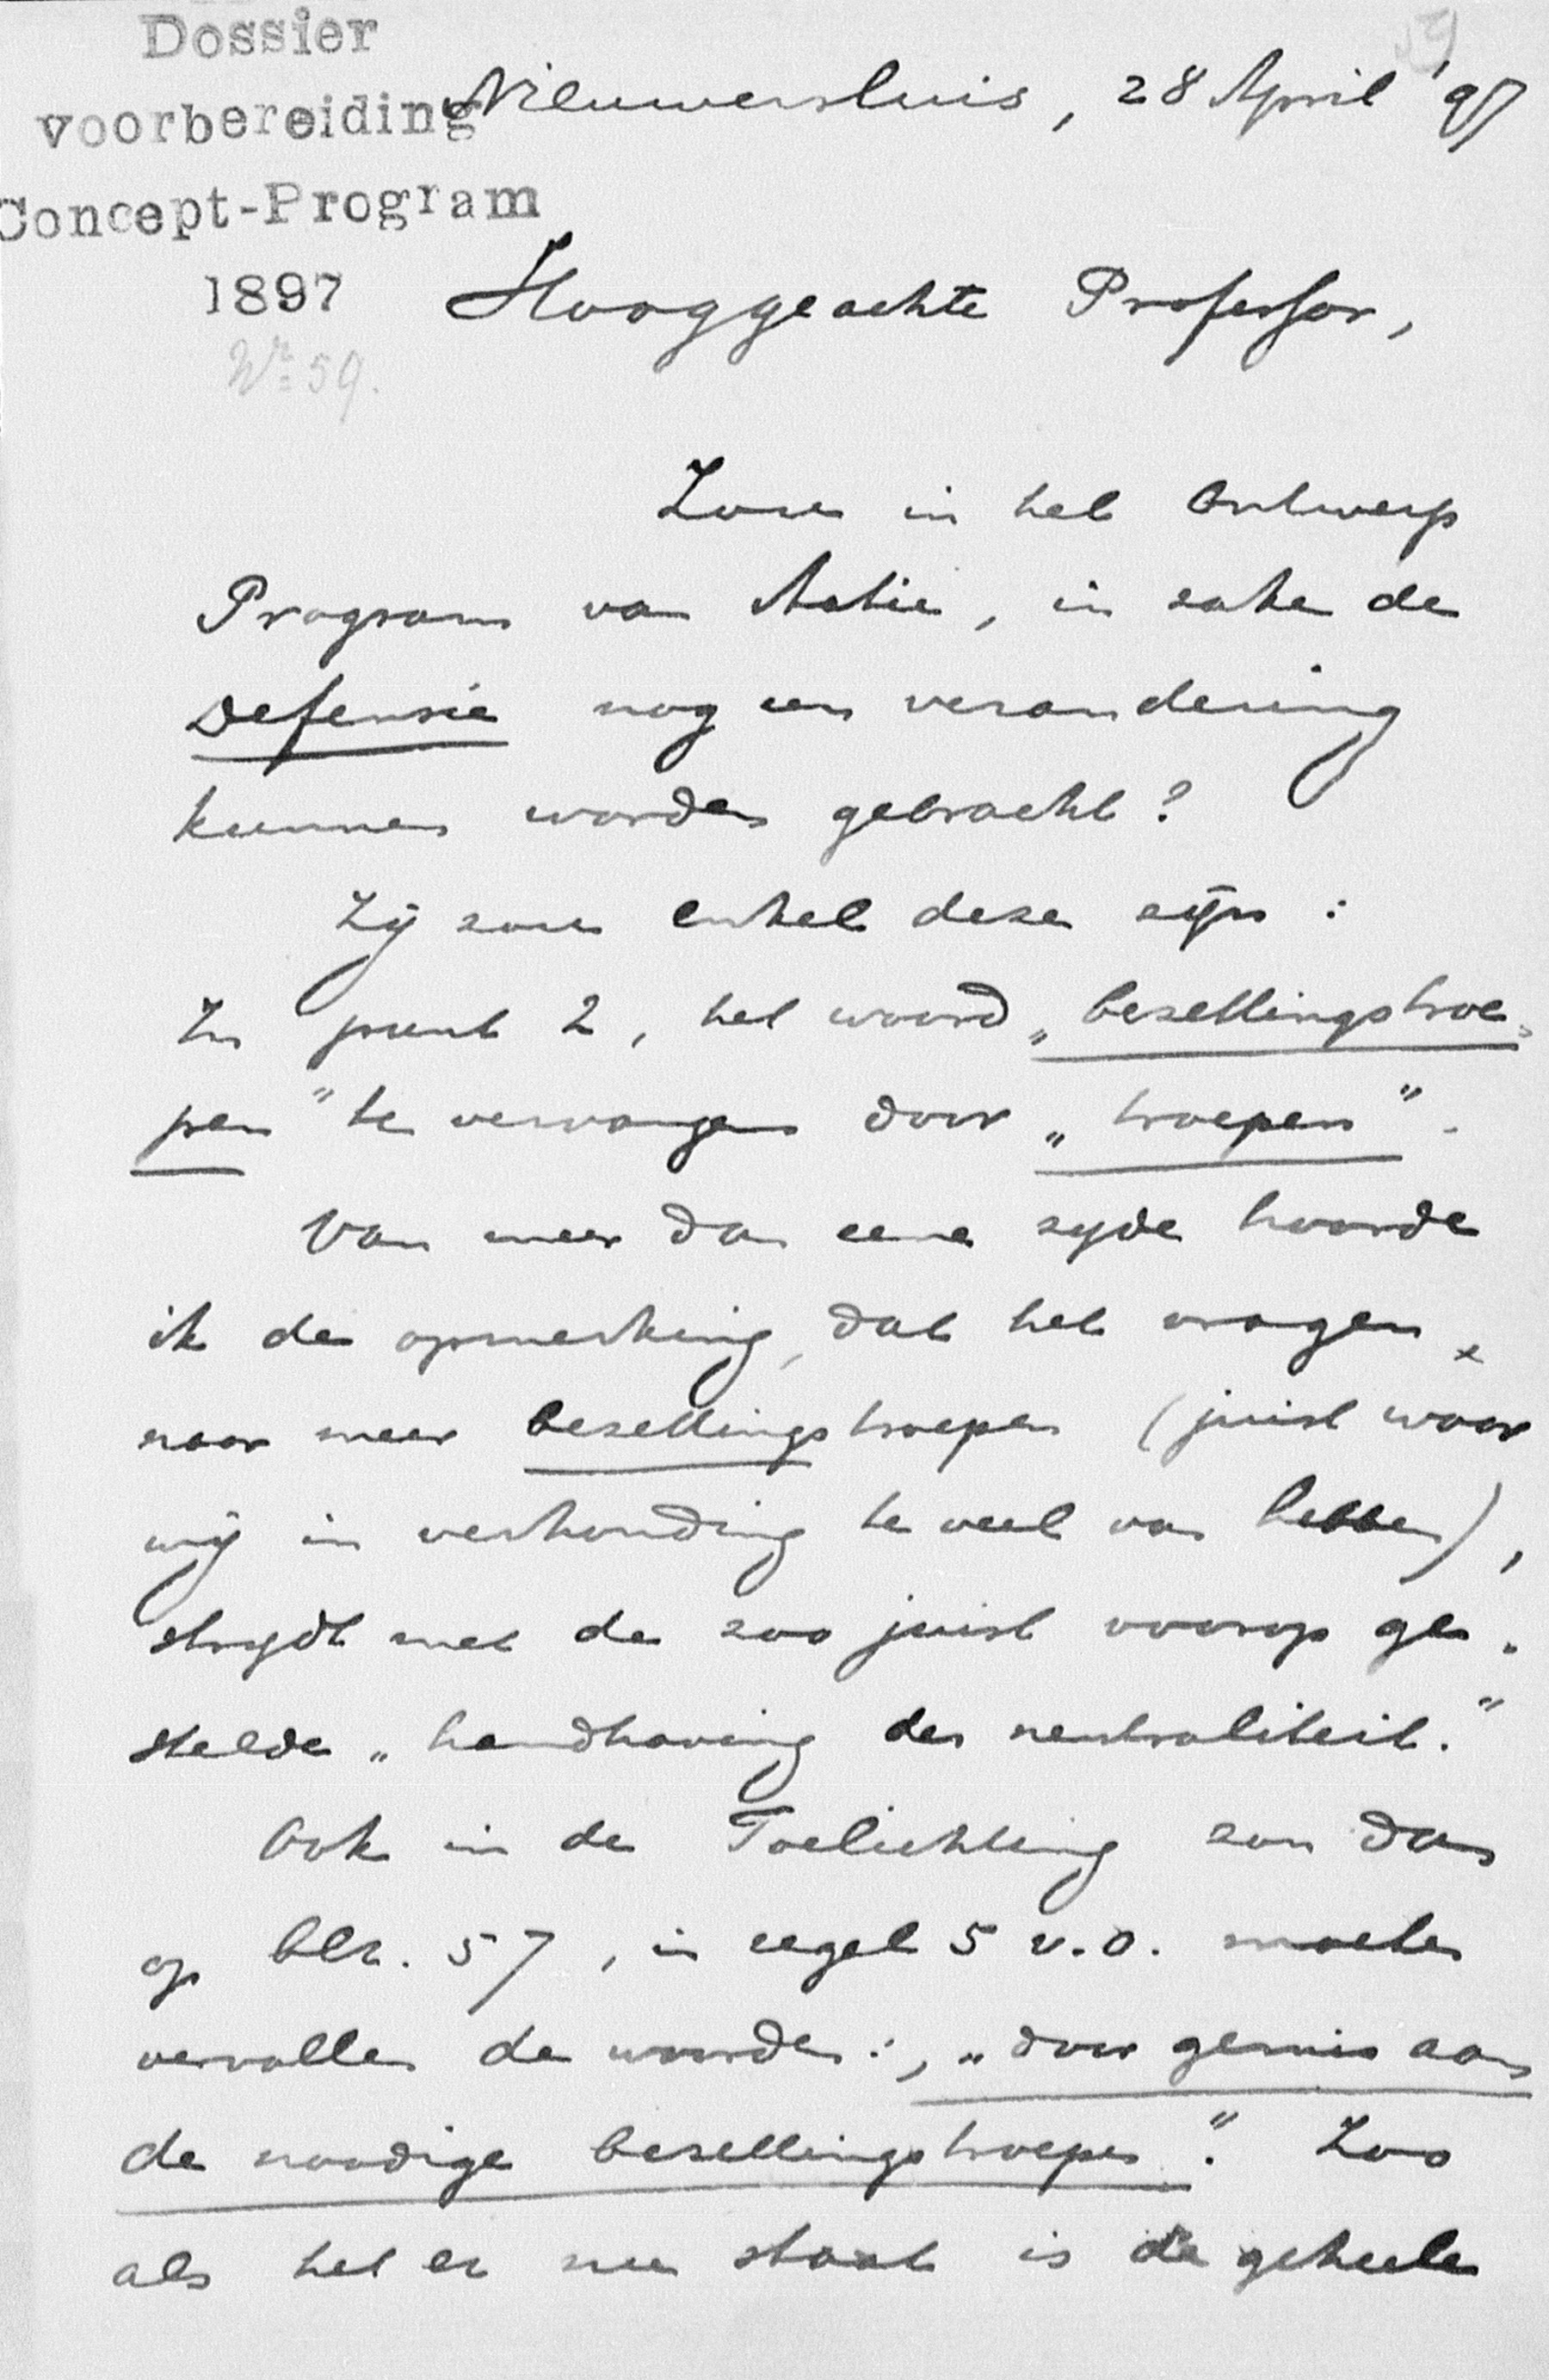 59
Dossier
voorbereiding
Concept-Program
1897
Nr. 59.
Nieuwersluis, 28 April '97
Hooggeachte Professor,
Zou in het Ontwerp
Program van Actie, in zake de
Defensie nog een verandering
kunnen worden gebracht?
Zij zou enkel deze zijn:
In punt 2, het woord „bezettingstroe-
pen" te vervangen door „troepen".
Van meer dan eene zijde hoorde
ik de opmerking, dat het vragen
naar meer bezettingstroepen (juist waar
wij in verhouding te veel van hebben),
strijdt met de zoo juist voorop ge-
stelde „handhaving der neutraliteit."
Ook in de Toelichting zou dan
op blz. 57, in regel 5 v.o. moeten
vervallen de woorden:, „door gemis aan
de noodige bezettingstroepen". Zoo
als het er nu staat is de geheele